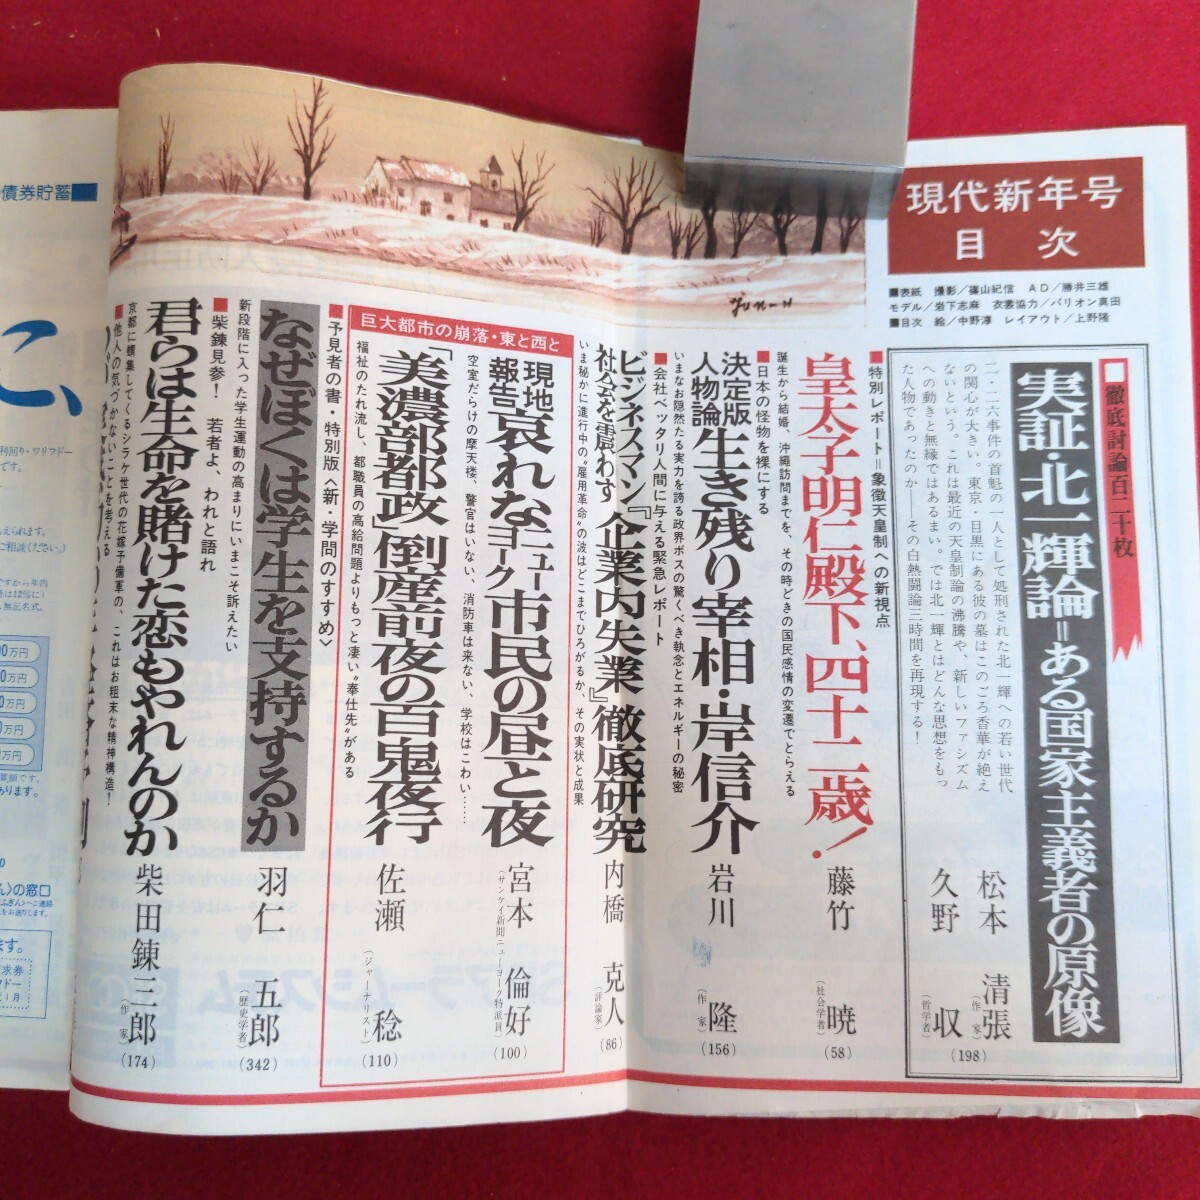 現代新年号
目次
■表紙 撮影/篠山紀信 AD/勝井三雄
モデル/岩下志麻 衣裳協力/パリオン真田
■目次 絵/中野淳 レイアウト/上野隆
■徹底討論百二十枚
実証・北一輝論=ある国家主義者の原像
二・二六事件の首魁の一人として処刑された北一輝への若い世代
の関心が大きい。東京・目黒にある彼の墓はこのごろ香華が絶え
ないという。これは最近の天皇制論の沸騰や、新しいファシズム
への動きと無縁ではあるまい。では北一輝とはどんな思想をもっ
た人物であったのか——その白熱闘論三時間を再現する!
松本清張
(作家)
久野収
(哲学者)
(198)
■特別レポート=象徴天皇制への新視点
皇太子明仁殿下、四十二歳!
誕生から結婚、沖縄訪問までを、その時どきの国民感情の変遷でとらえる
藤竹暁
(社会学者)
(58)
■日本の怪物を裸にする
決定版
人物論
生き残り宰相・岸信介
いまなお隠然たる実力を誇る政界ボスの驚くべき執念とエネルギーの秘密
岩川隆
(作家)
(156)
■会社ベッタリ人間に与える緊急レポート
ビジネスマン
社会を震わす
『企業内失業』徹底研究
いま秘かに進行中の"雇用革命"の波はどこまでひろがるか、その実状と成果
内橋克人
(評論家)
(86)
巨大都市の崩落・東と西と
現地
報告
哀れなニューヨーク市民の昼と夜
空室だらけの摩天楼、警官はいない、消防車は来ない、学校はこわい……
宮本倫好
(サンケイ新聞ニューヨーク特派員)
(100)
「美濃部都政」倒産前夜の百鬼夜行
福祉のたれ流し、都職員の高給問題よりもっと凄い"奉仕先"がある
佐瀬稔
(ジャーナリスト)
(110)
■予見者の書・特別版〈新・学問のすすめ〉
なぜぼくは学生を支持するか
新段階に入った学生運動の高まりにいまこそ訴えたい
羽仁五郎
(歴史学者)
(342)
■柴錬見参! 若者よ、われと語れ
君らは生命を賭けた恋もやれんのか
京都に蝟集してくるシラケ世代の花嫁予備軍の、これはお粗末な精神構造!
柴田錬三郎
(作家)
(174)
■他人の気づかないことを考える
債券貯蓄
こ、